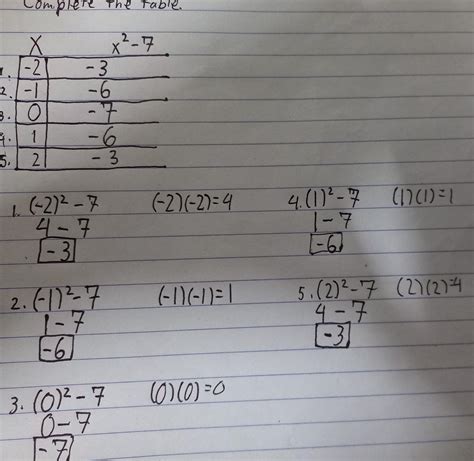 Complete the table.
X x² - 7
1. -2 -3
2. -1 -6
3. 0 -7
4. 1 -6
5. 2 -3
1. (-2)² - 7 (-2)(-2)=4
4 - 7
-3
2. (-1)² - 7 (-1)(-1)=1
1 - 7
-6
3. (0)² - 7 (0)(0)=0
0 - 7
-7
4. (1)² - 7 (1)(1)=1
1 - 7
-6
5. (2)² - 7 (2)(2)=4
4 - 7
-3